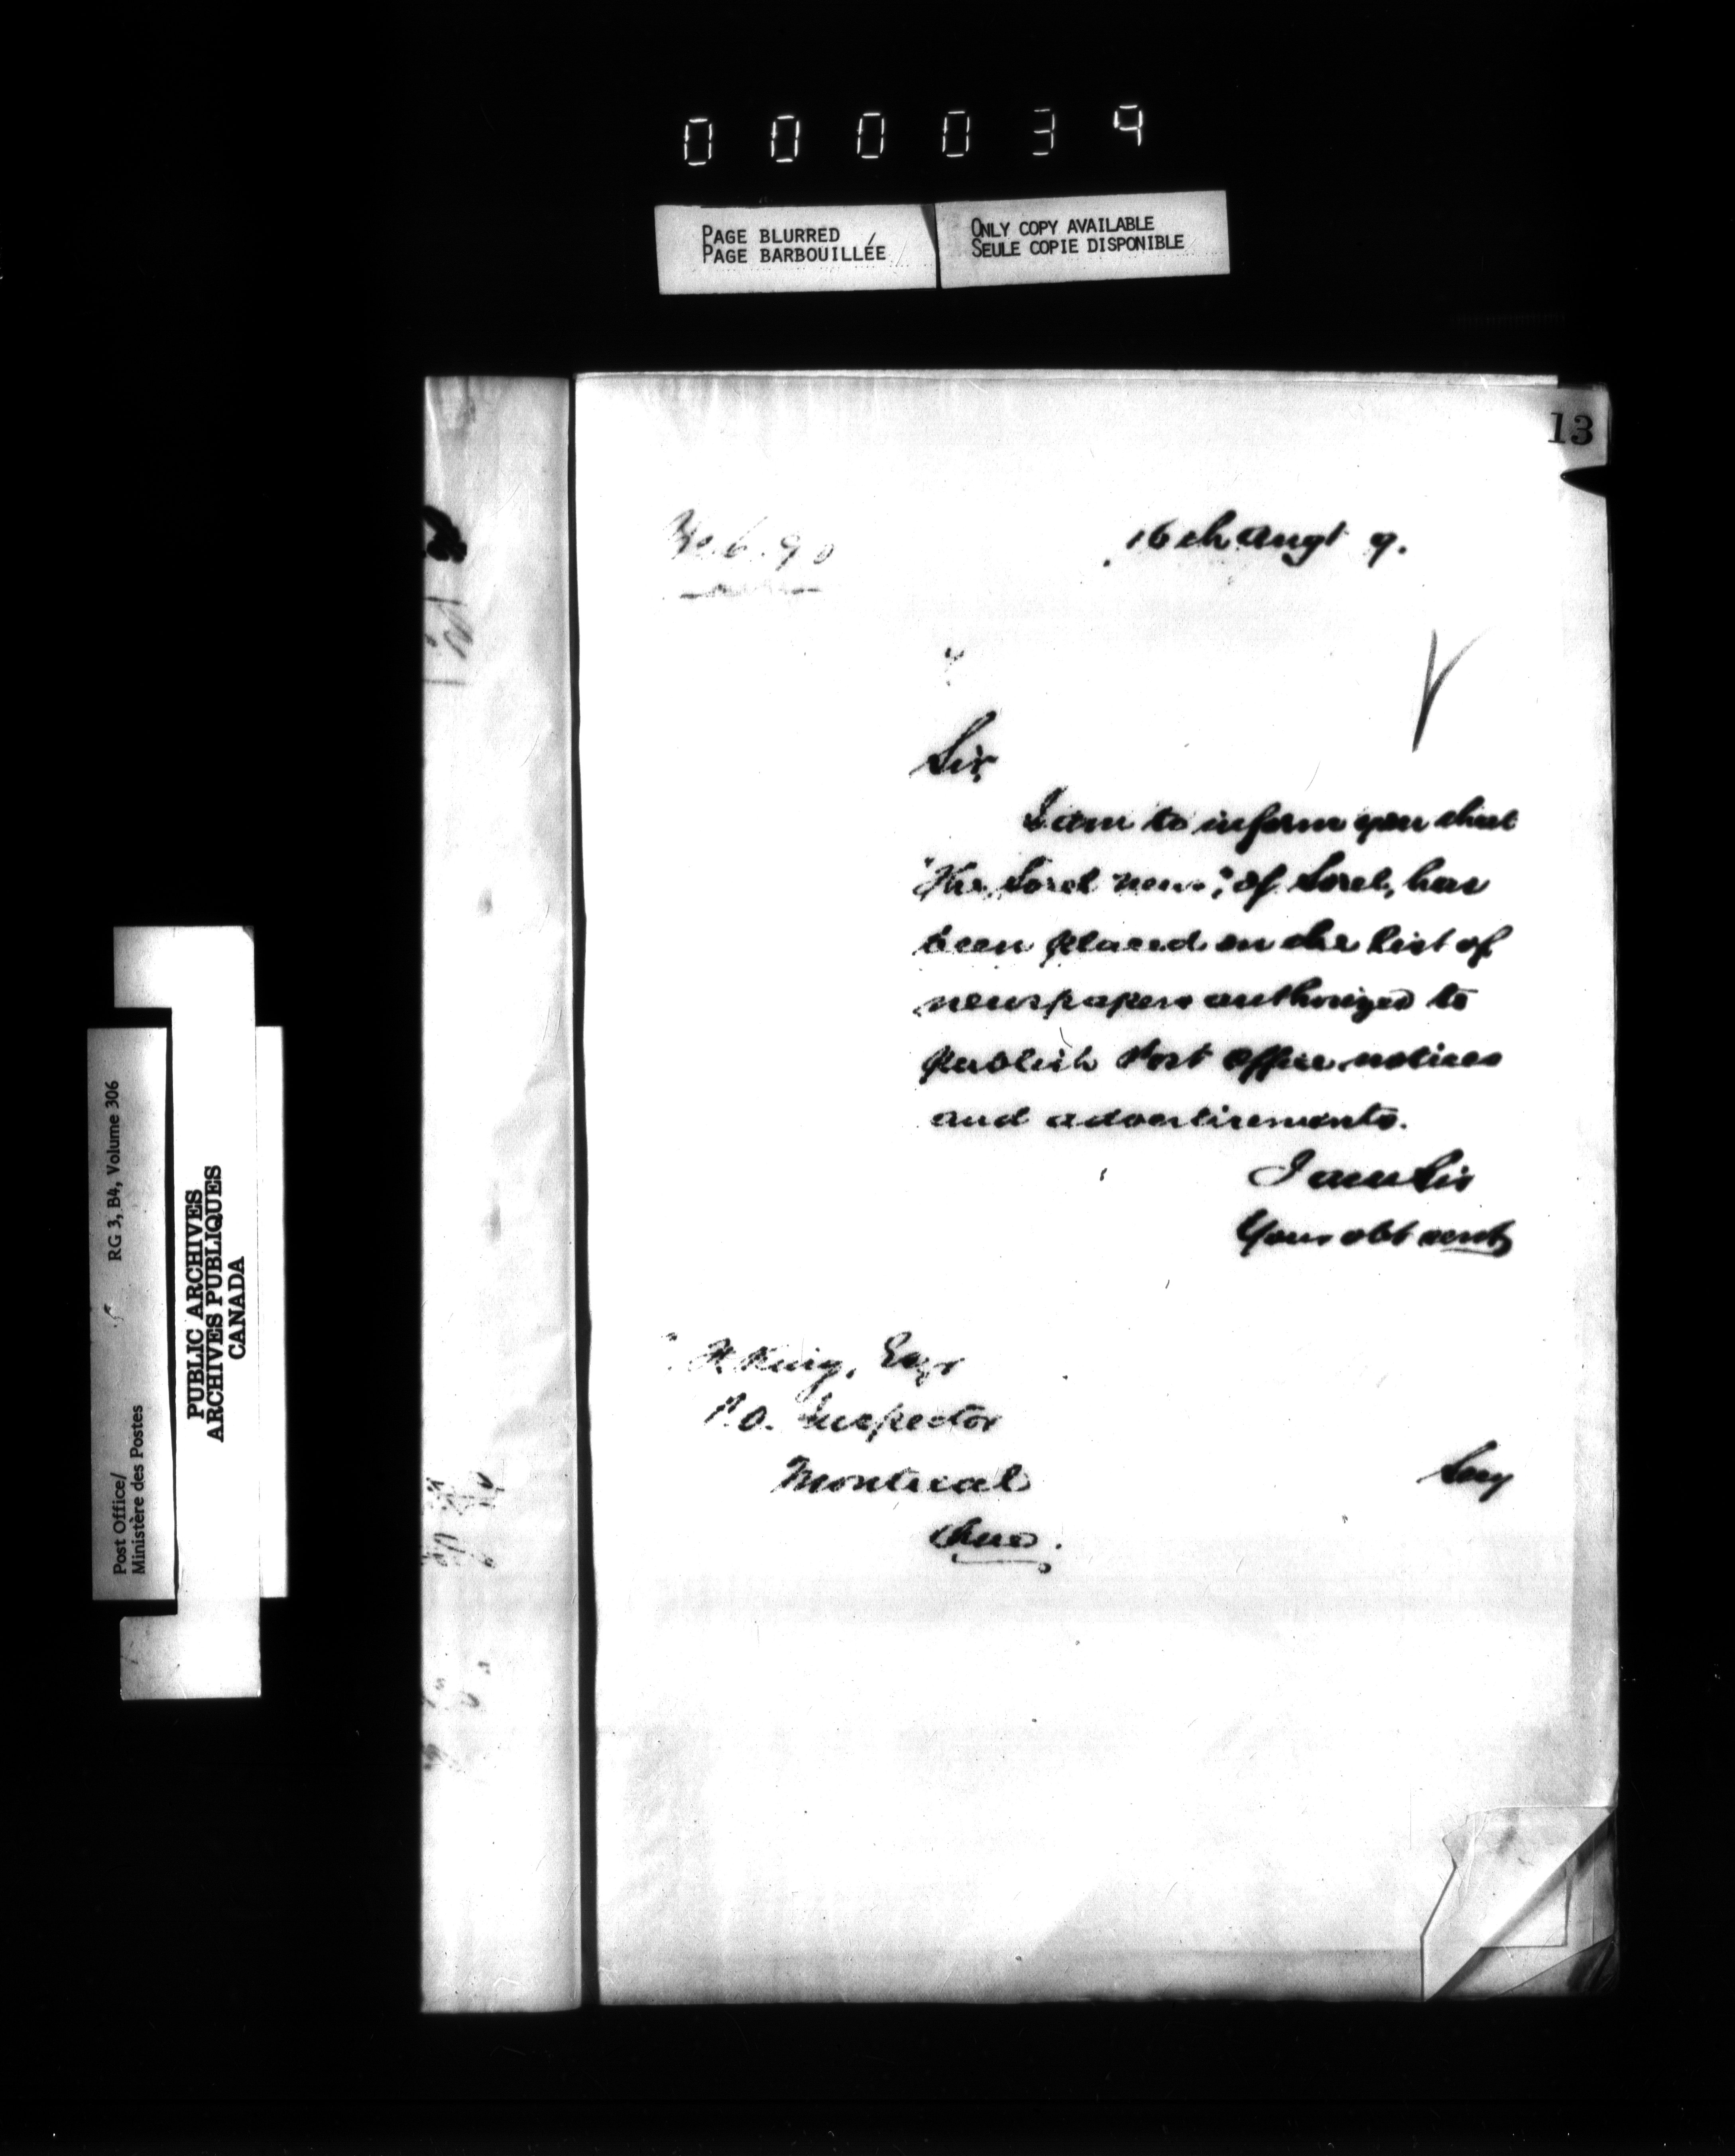 000039
PAGE BLURRED
PAGE BARBOUILLÉE
ONLY COPY AVAILABLE
SEULE COPIE DISPONIBLE
13
16th Augt 9.
Sir,
I am to inform you that
"The Sorel News", of Sorel, has
been placed on the list of
newspapers authorized to
publish Post Office notices
and advertisements.
I am Sir
Your obt servt
King, Esqr
P.O. Inspector
Montreal
Que.
Secy
Post Office/
Ministère des Postes
RG 3, B4, Volume 306
PUBLIC ARCHIVES
ARCHIVES PUBLIQUES
CANADA